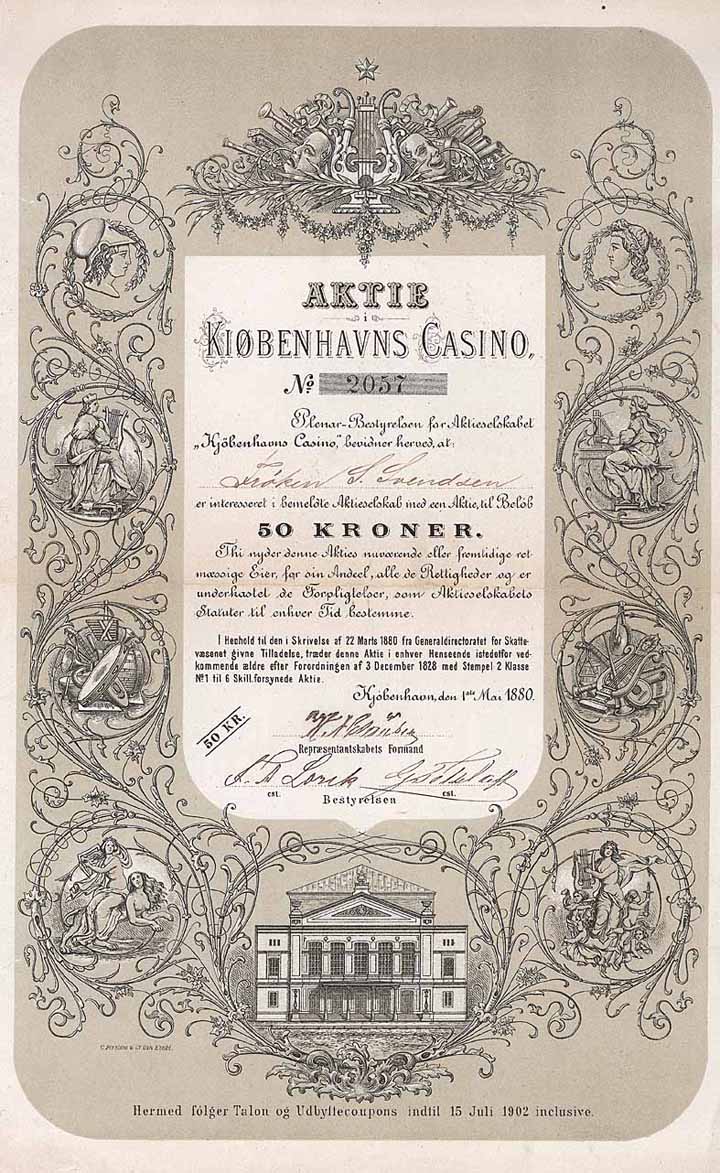 AKTIE
i
KIØBENHAVNS CASINO,
No 2057
Plenar-Bestyrelsen for Aktieselskabet
„Kjöbenhavns Casino,” bevidner herved, at:
Fröken S. Svendsen
er interesseret i bemeldte Aktieselskab med een Aktie, til Belöb
50 KRONER.
Thi nyder denne Akties nuværende eller fremtidige ret
mæssige Eier, for sin Andeel, alle de Rettigheder og er
underkastet de Forpligtelser, som Aktieselskabets
Statuter til enhver Tid bestemme.
I Henhold til den i Skrivelse af 22 Marts 1880 fra Generaldirectoratet for Skatte-
væsenet givne Tilladelse, træder denne Aktie i enhver Henseende istedetfor ved-
kommende ældre efter Forordningen af 3 December 1828 med Stempel 2 Klasse
No 1 til 6 Skill. forsynede Aktie.
Kjöbenhavn, den 1ste Mai 1880.
50 KR.
Repræsentantskabets Formand
cst. cst.
Bestyrelsen
Hermed fölger Talon og Udbyttecoupons indtil 15 Juli 1902 inclusive.